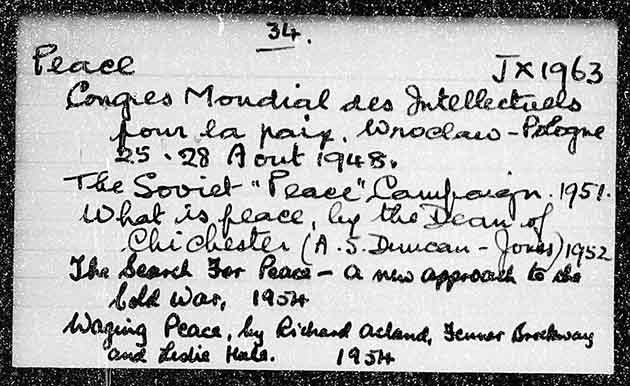 34.
Peace JX1963
Congres Mondial des Intellectuels
pour la paix. Wroclaw - Pologne
25 - 28 Aout 1948.
The Soviet "Peace" Campaign. 1951.
What is peace, by the Dean of
Chichester (A. S. Duncan - Jones) 1952
The Search For Peace - a new approach to the
Cold War, 1954
Waging Peace, by Richard Acland, Fenner Brockway
and Leslie Hale. 1954